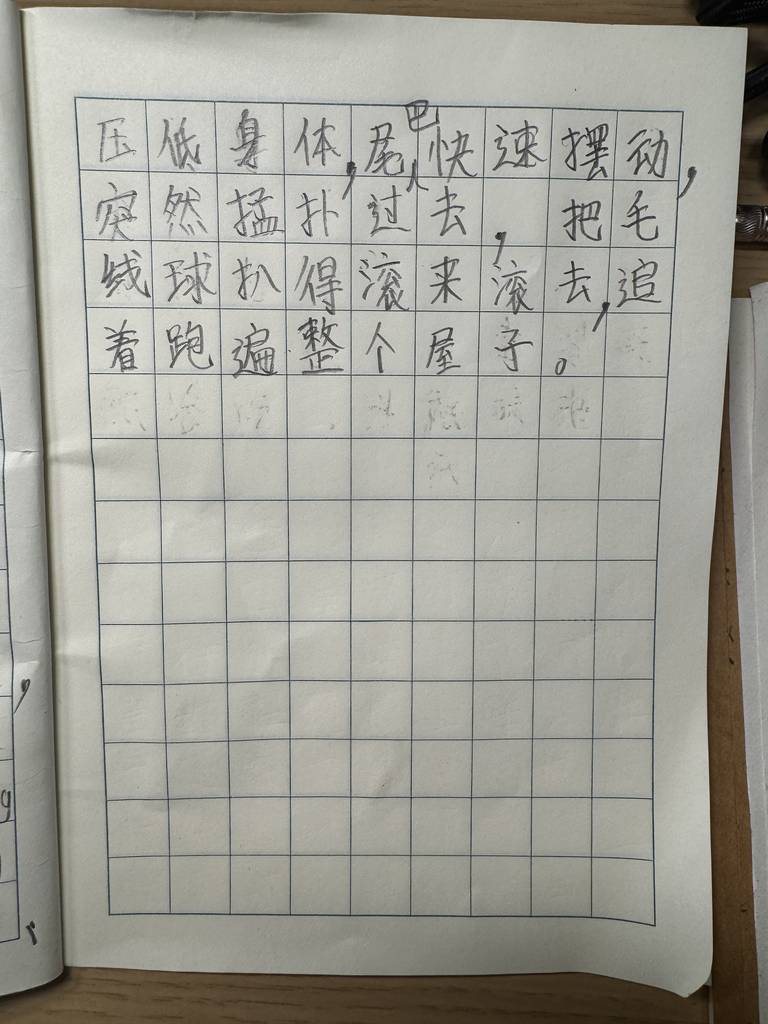 压低身体，尾巴快速摆动，
突然猛扑过去，把毛
线球扒得滚来滚去，追
着跑遍整个屋子。